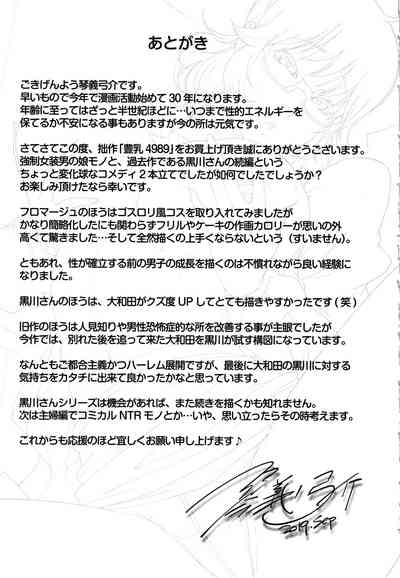 あとがき
ごきげんよう琴義弓介です。
早いもので今年で漫画活動始めて30年になります。
年齢に至ってはざっと半世紀ほど…いつまで性的エネルギーを
保てるか不安になる事もありますが今の所は元気です。
さてさてこの度、拙作『豊乳4989』をお買上げ頂き誠にありがとうございます。
強制女装男の娘モノと、過去作である黒川さんの続編という
ちょっと変化球なコメディ2本立てでしたが如何でしたでしょうか?
お楽しみ頂けたなら幸いです。
フロマージュのほうはゴスロリ風コスを取り入れてみましたが
かなり簡略化したにも関わらずフリルやケーキの作画カロリーが思いの外
高くて驚きました…そして全然描くの上手くならないという（すいません）。
ともあれ、性が確立する前の男子の成長を描くのは不慣れながら良い経験に
なりました。
黒川さんのほうは、大和田がクズ度UPしてとても描きやすかったです（笑）
旧作のほうは人見知りや男性恐怖症的な所を改善する事が主眼でしたが
今作では、別れた後を追って来た大和田を黒川が試す構図になっています。
なんともご都合主義かつハーレム展開ですが、最後に大和田の黒川に対する
気持ちをカタチに出来て良かったかなと思っています。
黒川さんシリーズは機会があれば、また続きを描くかも知れません。
次は主婦編でコミカルNTRモノとか…いや、思い立ったらその時考えます。
これからも応援のほど宜しくお願い申し上げます♪
琴義弓介
2019.Sep